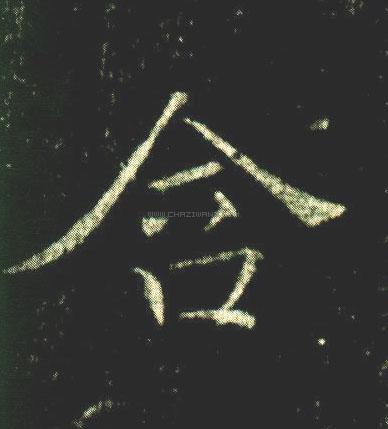 含
WWW.CHAZIWANG.COM